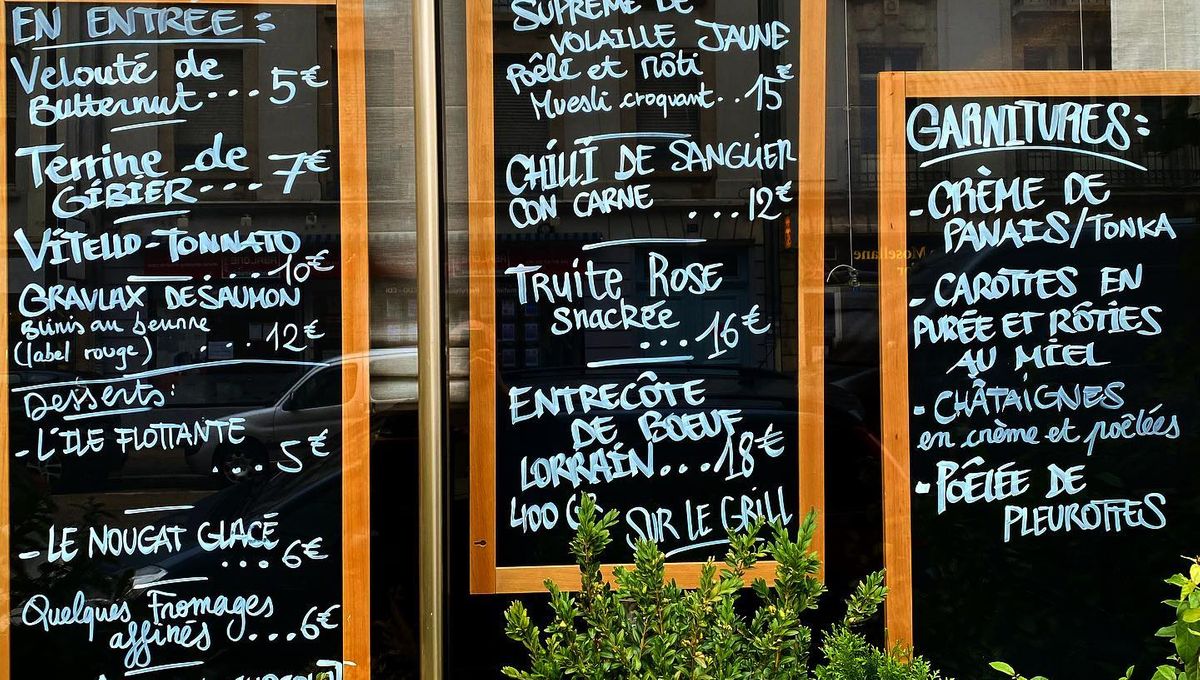 EN ENTREE :
Velouté de
Butternut... 5€
Terrine de
GIBIER... 7€
VITELLO-TONNATO
... 10€
GRAVLAX DE SAUMON
Blinis au beurre
(label rouge) .... 12€
Desserts :
- L'ILE FLOTTANTE
... 5€
- LE NOUGAT GLACÉ
... 6€
Quelques Fromages
affinés ... 6€
SUPRÊME DE
VOLAILLE JAUNE
Poêli et Rôti
Muesli croquant.. 15€
CHILLI DE SANGLIER
CON CARNE ... 12€
Truite Rose
snackée
... 16€
ENTRECÔTE
DE BOEUF
LORRAIN... 18€
400 GR SUR LE GRILL
GARNITURES :
- CRÈME DE
PANAIS/TONKA
- CAROTTES EN
PURÉE ET RÔTIES
AU MIEL
- CHÂTAIGNES
en crème et poêlées
- POÊLÉE DE
PLEUROTTES